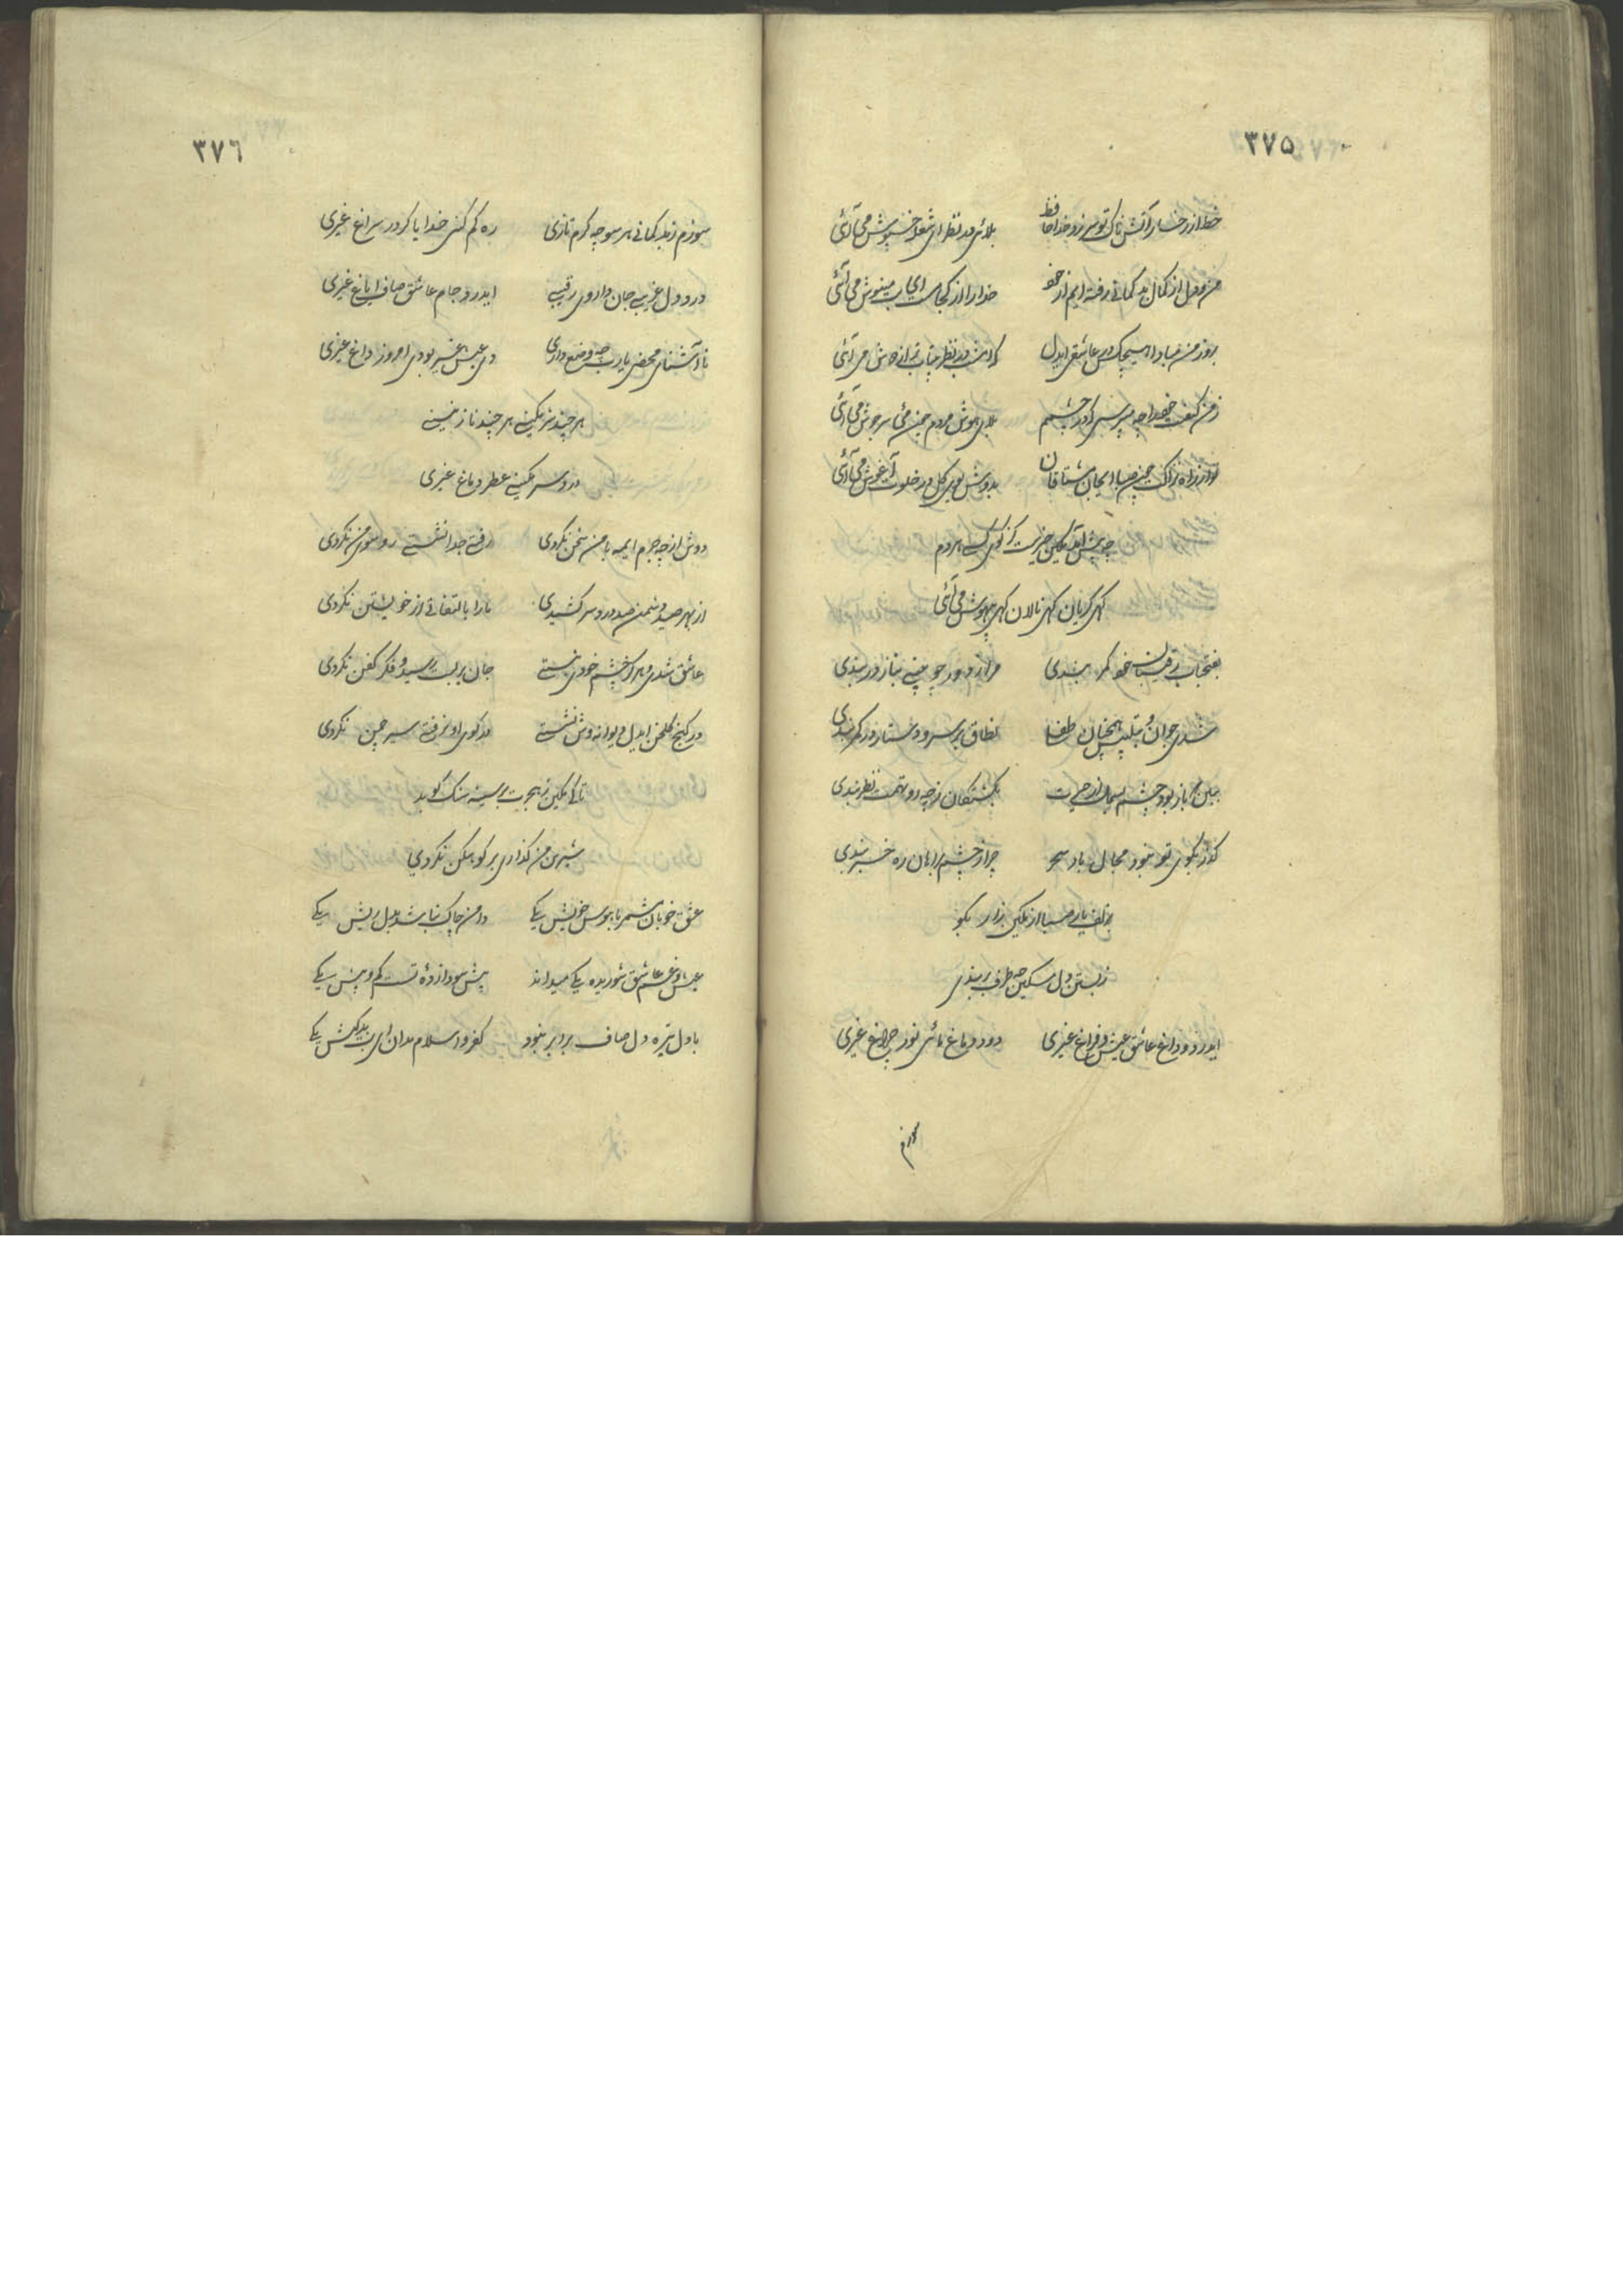 ۳۷۵
خط از رخسار آتشناک تو سر زد خدا حافظ بلائی در نظر ای شعله خس پوش می آئی
من منفعل از کمال بد گمانی رفته ایم از خود خدا را از کجا مست ای می نوش می آئی
بروز من مبادا هیچکس در عاشقی ایدل که امشب در نظر بیتاب تر از دوش می آئی
ز من کیفیت خود را چه میپرسی که در چشم بلای هوش مردم چون می سر جوش می آئی
بدوش بوی گل در خلوت آغوش می آئی
چو پیش آمد مکین خیرست کز کوی که هر دم
گهی گریان گهی نالان گهی بیهوش می آئی
بفتحیاب رقیبان خود کمر بندی مرا ز دور چو بینی بناز در بندی
شدی جوان و همچنان طفلی نطاق بر سر و دستار در کمر بندی
چنین که باز بود چشم بسملت از حیرت بکشتگان ز چه رو تهمت نظر بندی
گذر بکوی تو نبود مجال باد سحر چرا ز چشم براهان ره خبر بندی
بزلف یار صبا از مکین زار بگو
ز بستن دل مسکین چه طرف بر بندی
ایدرد و داغ عاشق عیش و فراغ غیری دود دماغ مائی نور چراغ غیری
سوزم
۳۷٦
سوزم ز بدگمانی هر سو چه گرم تازی ره گم کنی خدایا گر در سراغ غیری
درد دل غریبی جان داروی رقیبی ایدرد جام عاشق صاف ایاغ غیری
ناآشنای محضی یارب چه وضع داری دی عیش غیر بودی امروز داغ غیری
هر چند نازنینی
درد سر مکینی عطر دماغ غیری
دوش از چه جرم ایمه با من سخن نکردی رفتی جدا نشستی رو سوی من نکردی
از بهر صید دشمن صد درد سر کشیدی ما را بالتفاتی از خویشتن نکردی
عاشق شدی و مردی چشم خود نبستی جان بر لبت رسید و فکر کفن نکردی
در کنج گلخن ایدل دیوانه وش نشستی در کوی او نرفتی سیر چمن نکردی
تا کی مکین ز هجرت بر سینه سنگ کوبد
شیرین من گذاری بر کوهکن نکردی
عشق خوبان شمر با هوس خویش یکی دامن چاک نباشد بدل ریش یکی
عیش و غم عاشق شوریده یکی میداند پیش سودا زده تست کم و بیش یکی
با دل تیره دل صاف برابر نبود کفر و اسلام مدان ای بت بدکیش یکی